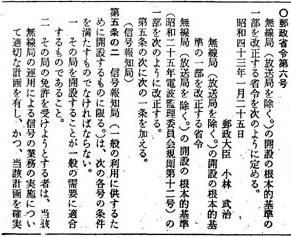 ○郵政省令第六号
無線局(放送局を除く。)の開設の根本的基準の
一部を改正する省令を次のように定める。
昭和四十三年一月二十五日
郵政大臣　小林　武治
無線局(放送局を除く。)の開設の根本的基
準の一部を改正する省令
無線局(放送局を除く。)の開設の根本的基準
(昭和二十五年電波監理委員会規則第十二号)の
一部を次のように改正する。
第五条の次に次の一条を加える。
(信号報知局)
第五条の二　信号報知局(一般の利用に供するた
めに開設するものに限る。)は、次の各号の条件
を満たすものでなければならない。
一　その局を開設することが一般の需要に適合
するものであること。
二　その局の免許を受けようとする者は、当該
無線局の運用による信号の業務の実施につい
て適切な計画を有し、かつ、当該計画を確実